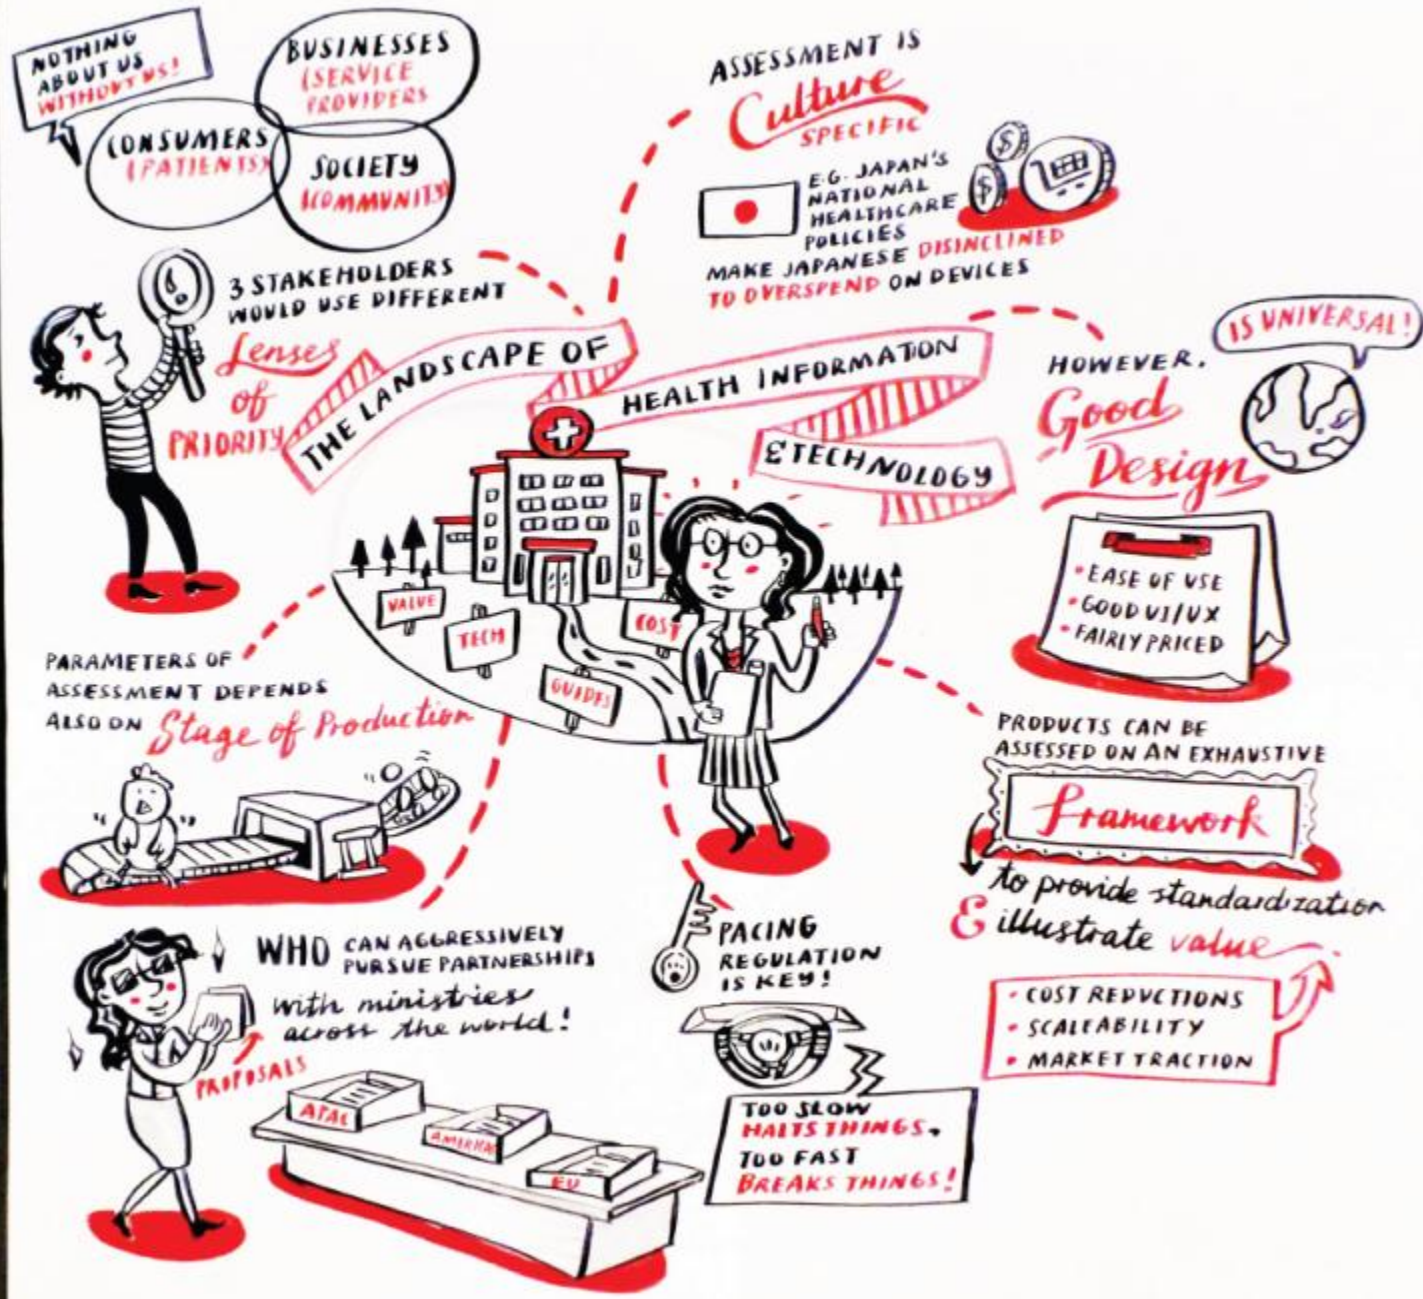 NOTHING
ABOUT US
WITHOUT US!
BUSINESSES
(SERVICE
PROVIDERS
CONSUMERS
(PATIENTS)
SOCIETY
(COMMUNITY)
3 STAKEHOLDERS
WOULD USE DIFFERENT
Lenses
of
PRIORITY
ASSESSMENT IS
Culture
SPECIFIC
E.G. JAPAN'S
NATIONAL
HEALTHCARE
POLICIES
MAKE JAPANESE DISINCLINED
TO OVERSPEND ON DEVICES
$
$
THE LANDSCAPE OF
HEALTH INFORMATION
& TECHNOLOGY
HOWEVER,
Good
Design
IS UNIVERSAL!
• EASE OF USE
• GOOD UI/UX
• FAIRLY PRICED
VALUE
TECH
COST
GUIDES
PARAMETERS OF
ASSESSMENT DEPENDS
ALSO ON Stage of Production
PRODUCTS CAN BE
ASSESSED ON AN EXHAUSTIVE
framework
to provide standardization
& illustrate value
• COST REDUCTIONS
• SCALEABILITY
• MARKET TRACTION
WHO CAN AGGRESSIVELY
PURSUE PARTNERSHIPS
with ministries
across the world!
PROPOSALS
APAC
AMERICAS
EU
PACING
REGULATION
IS KEY!
TOO SLOW
HALTS THINGS,
TOO FAST
BREAKS THINGS!